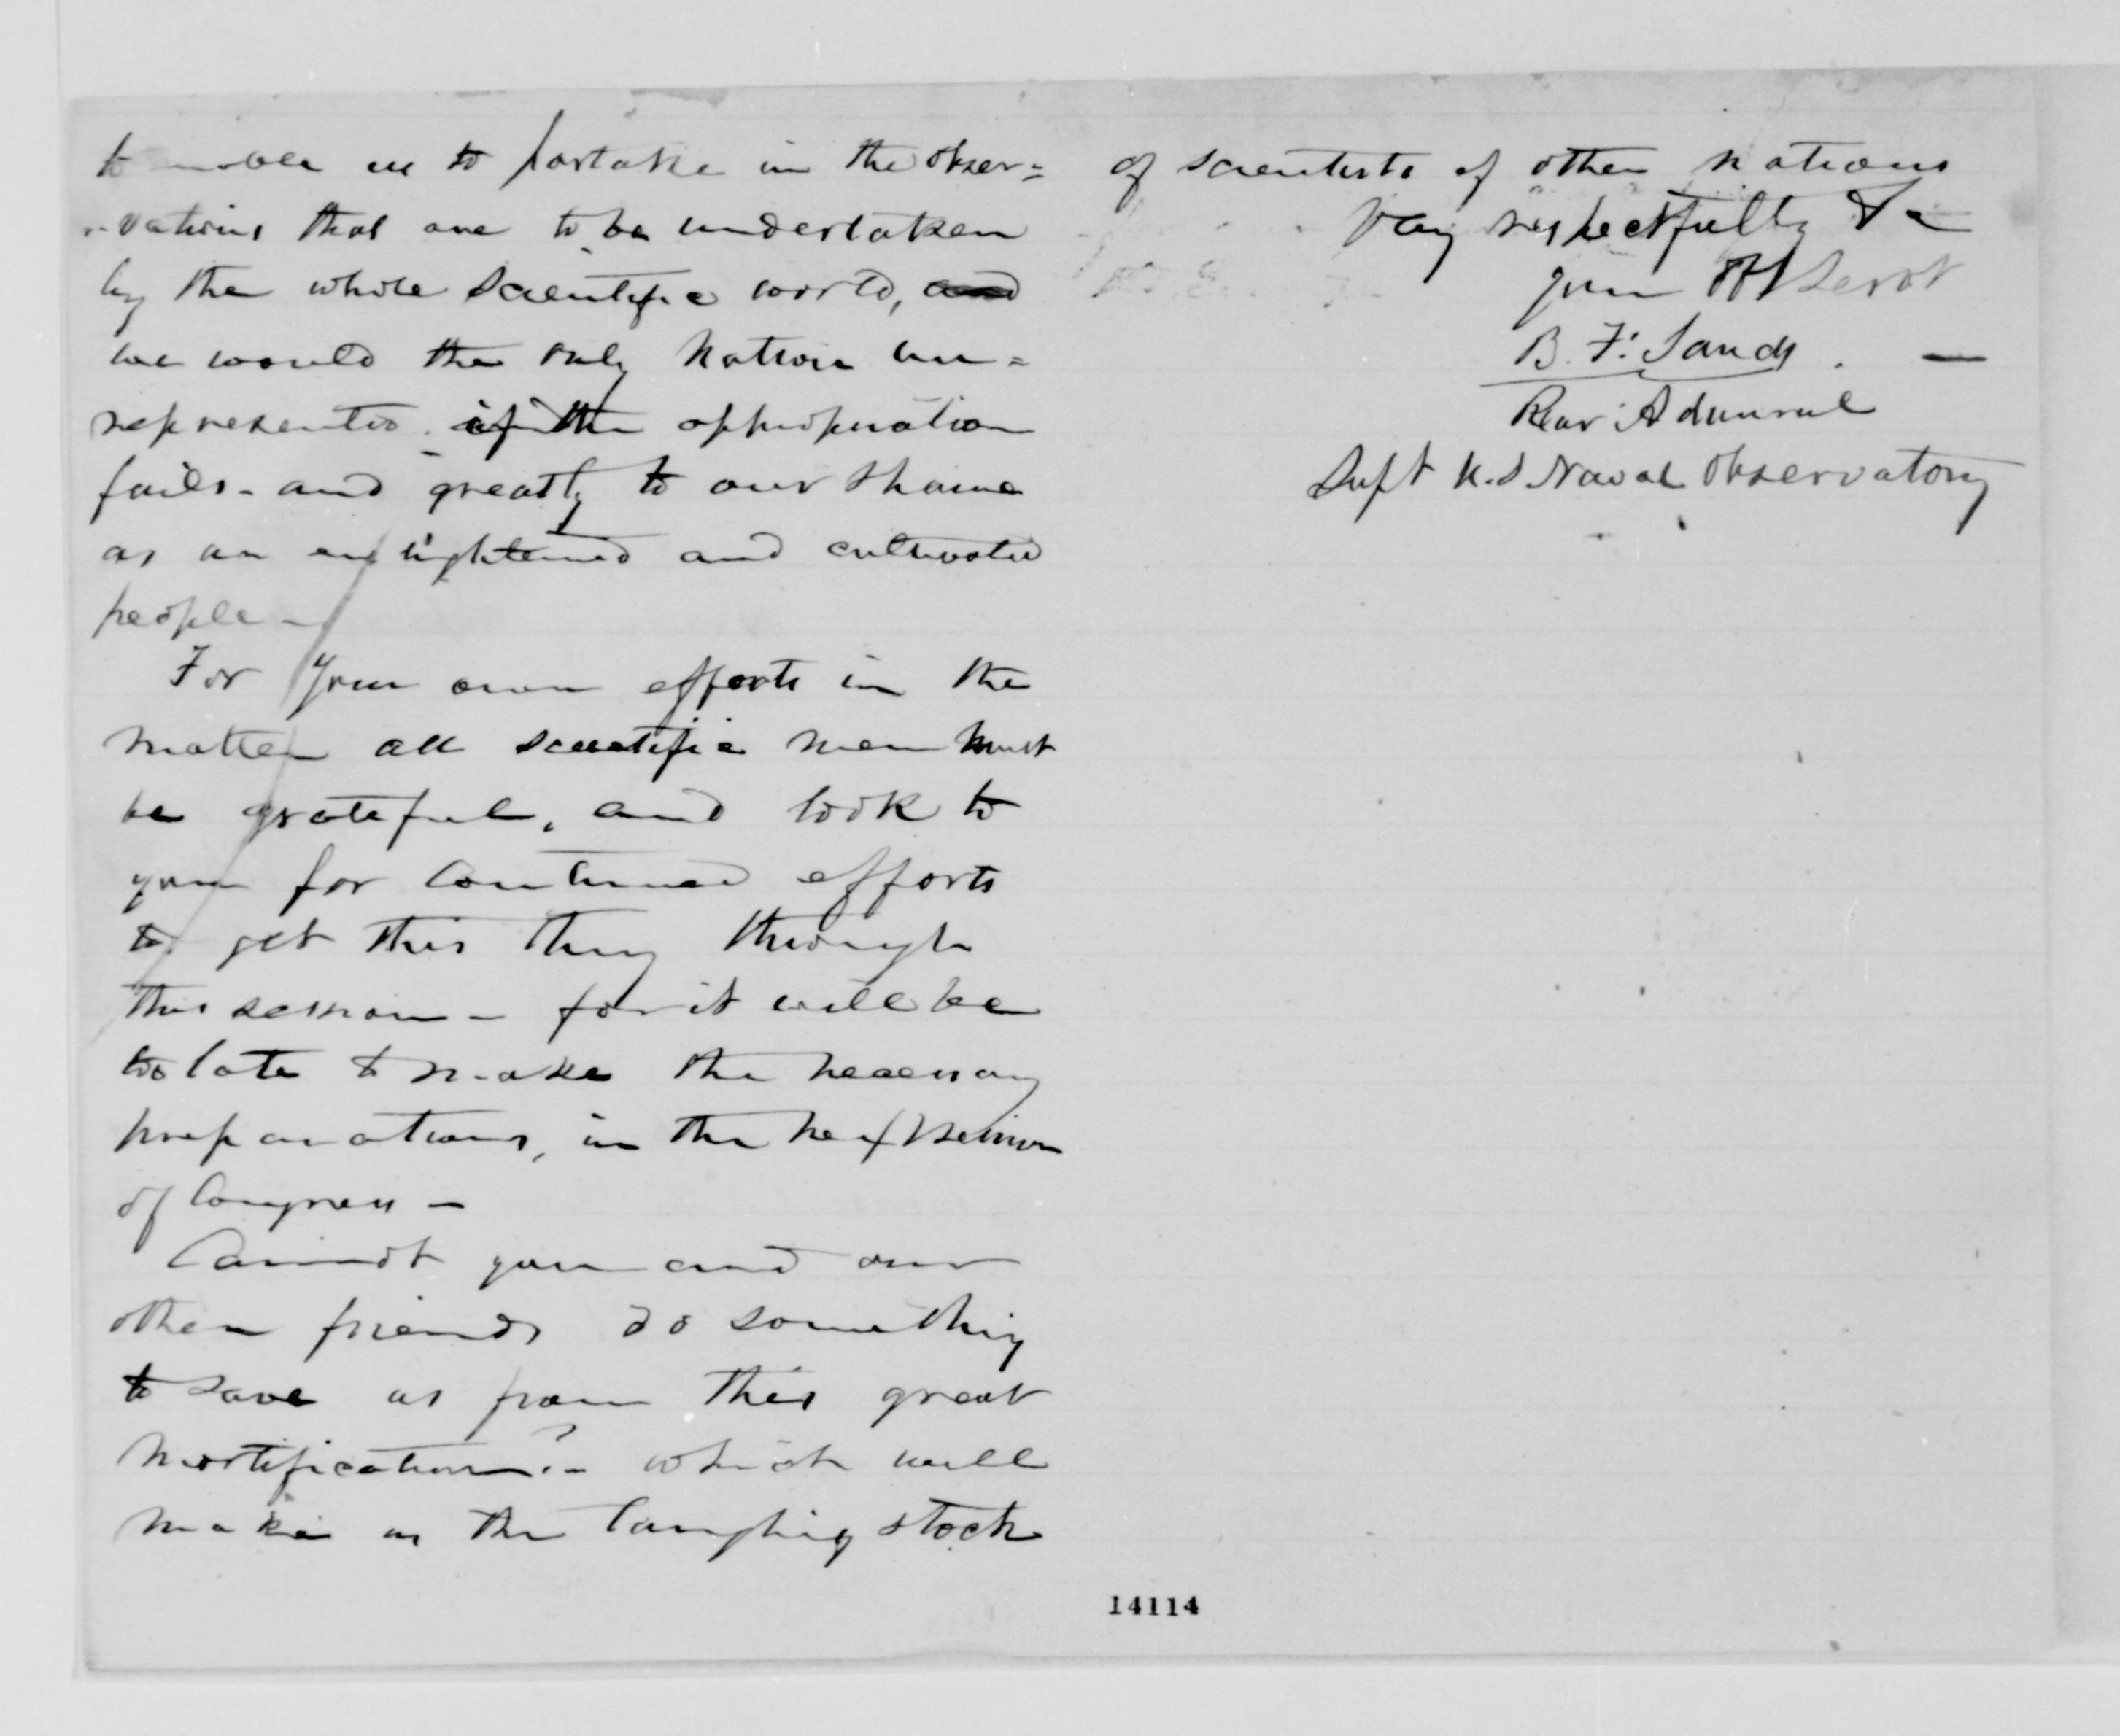 to enable us to partake in the obser=
-vations that are to be undertaken
by the whole scientific world, and
we would the only Nation un=
represented. if the appropriation
fails - and greatly to our shame
as an enlightened and cultivated
people -
For your own efforts in the
matter all scientific men must
be grateful, and look to
you for continued efforts
to get this thing through
this session - for it will be
too late to make the necessary
preparations, in the next session
of Congress -
Cannot you and our
other friends do something
to save us from this great
mortification? - which will
make us the laughing stock
of scientists of other nations
Very respectfully &c
your Obt Servt
B. F. Sands. -
Rear Admiral
Supt U.S. Naval Observatory
14114